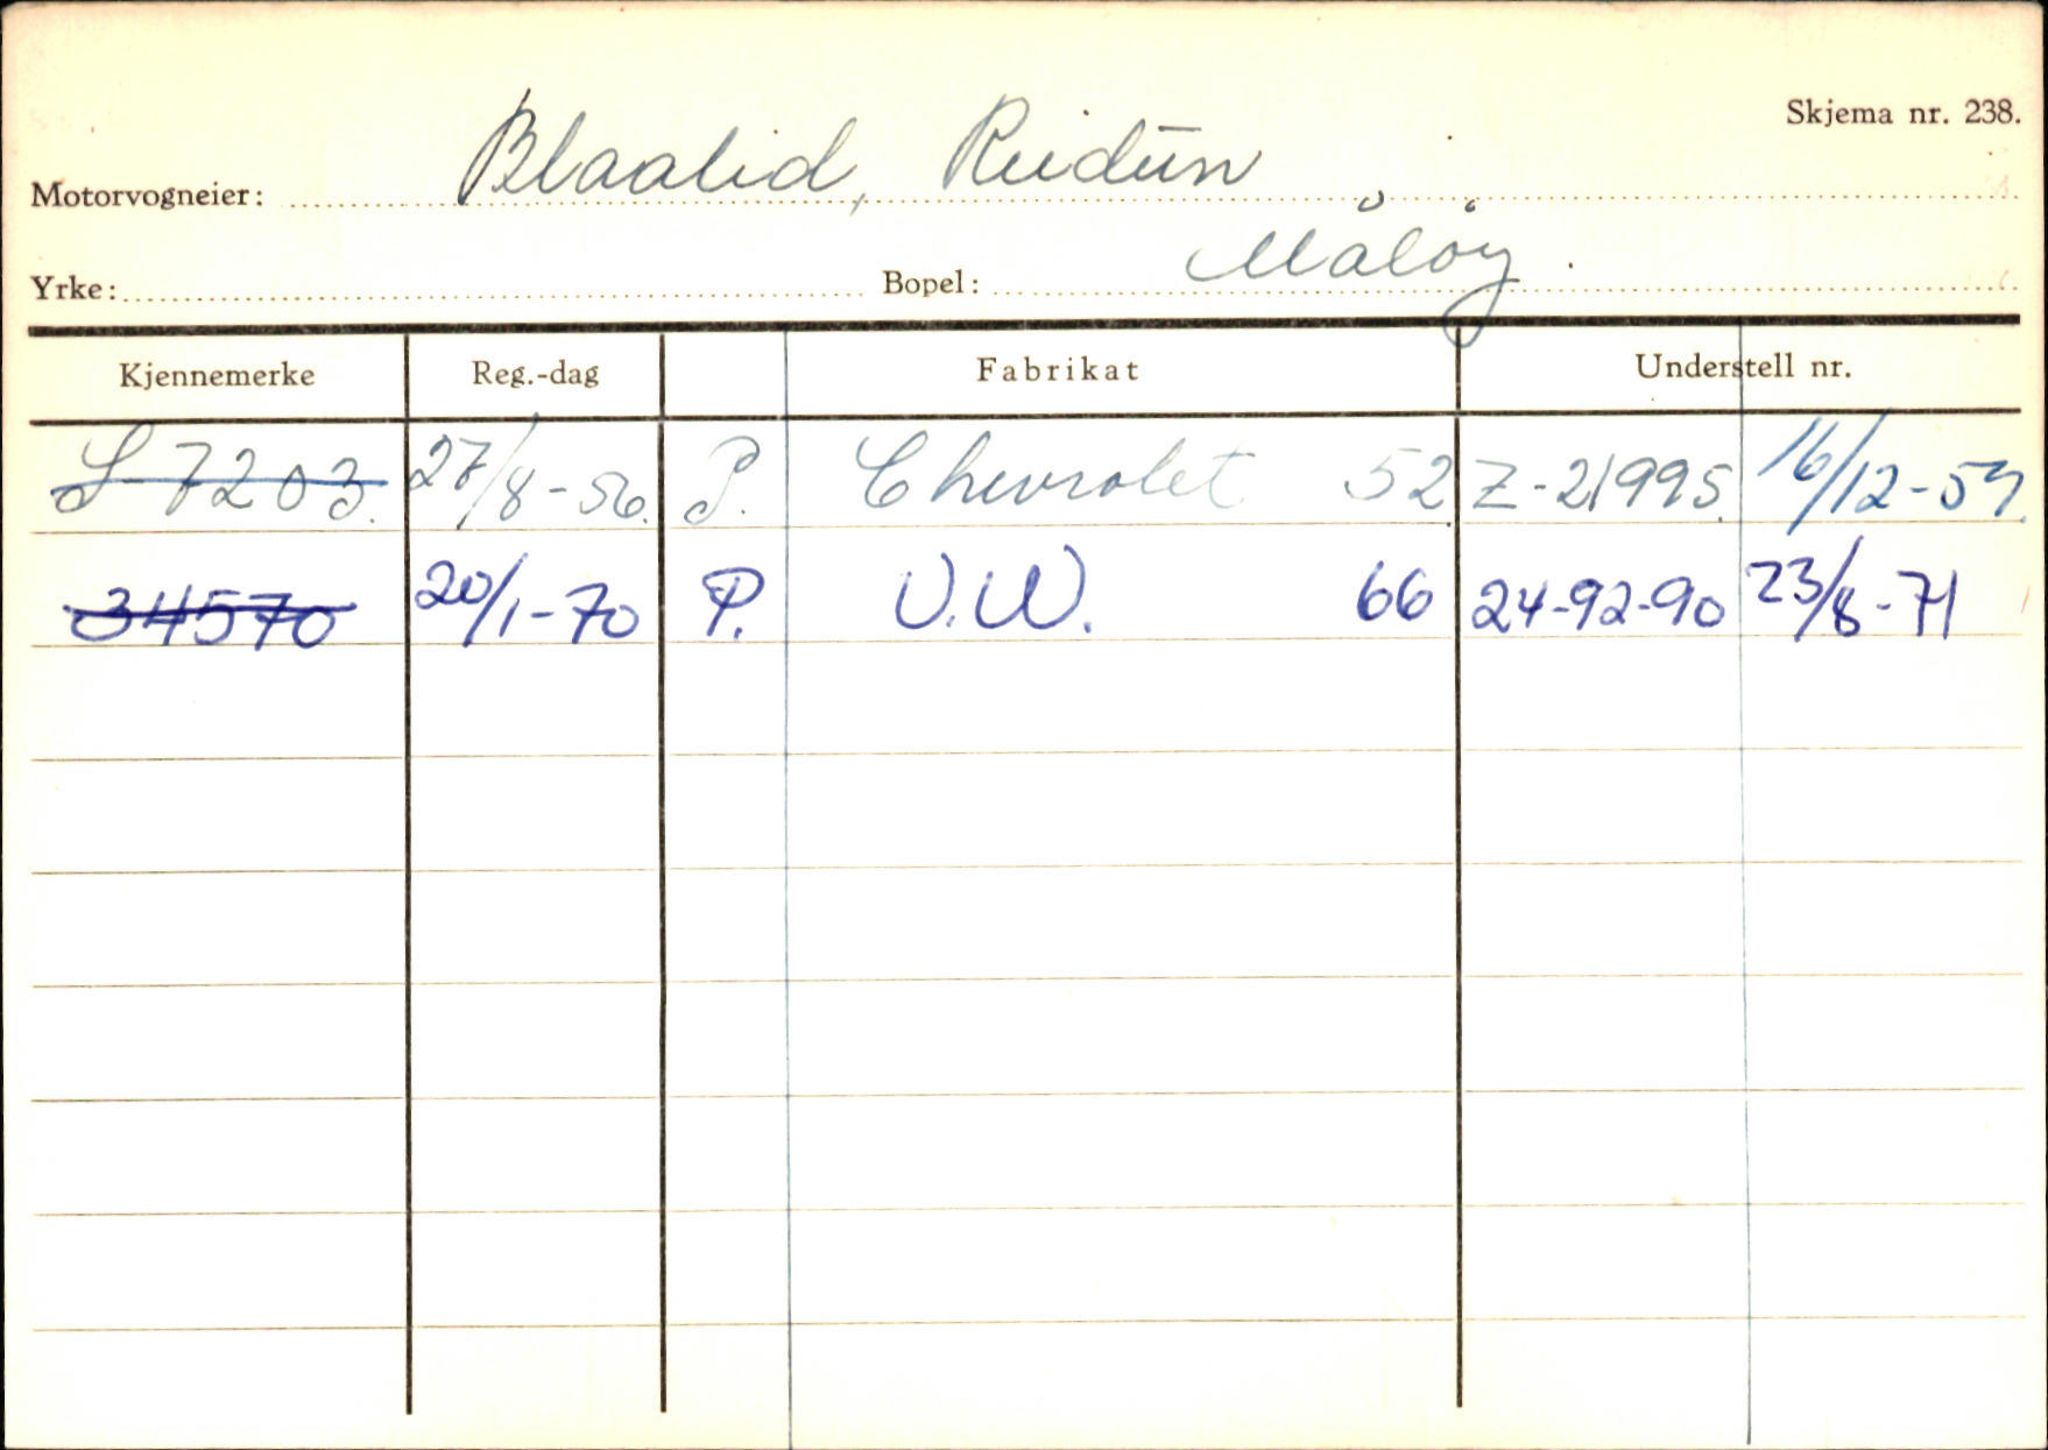 Skjema nr. 238.
Motorvogneier: Blaalid, Reidun
Yrke: Bopel: Måløy.
Kjennemerke Reg.-dag Fabrikat Understell nr.
S-7203. 27/8-56. P. Chevrolet 52 Z-21995. 16/12-57.
34570 20/1-70 P. V.W. 66 24-92-90 23/8-71